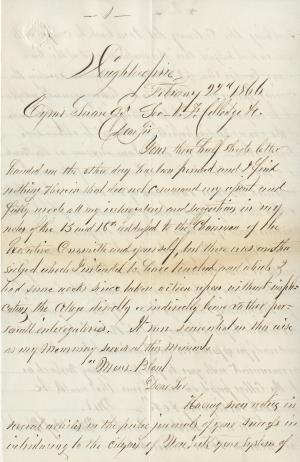 - 1 -
Poughkeepsie
February 22d 1866
Cyrus Swan Esqr Secy V. F. College &c.
Dear Sir
Your three half sheet letter
handed me the other day has been perused and I find
nothing therein that does not command my assent and
fully meets all my interrogatories and suggestions in my
notes of the 13 and 16th addressed to the Chairman of the
Executive Committee and yourself, but there was another
subject which I intended to have touched and which I
had some weeks since taken action upon without impli-
cating the College directly or indirectly being rather per-
sonal interrogatories. It runs somewhat in this wise
as my Memory serves at this moment
Dear Sir
Having seen notices in
several articles in the public journals of your success in
introducing to the citizens of New York your system of